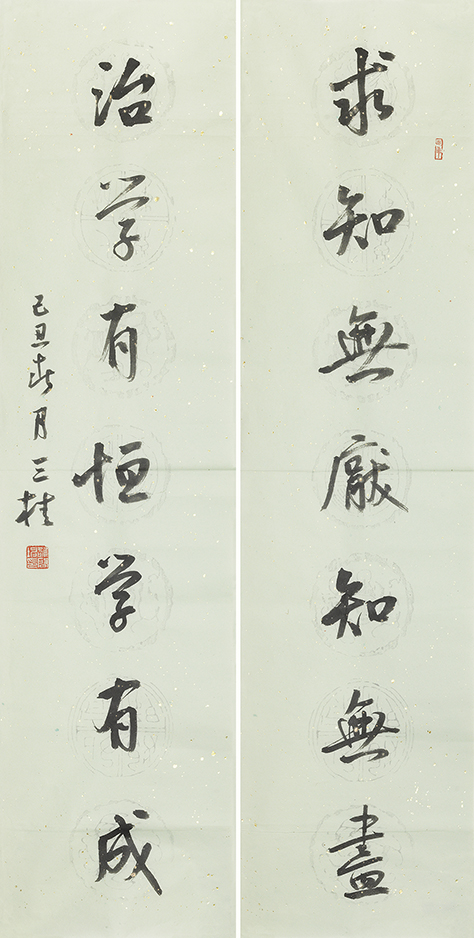 求知無厭知無盡
治学有恒学有成
己丑春月三桂